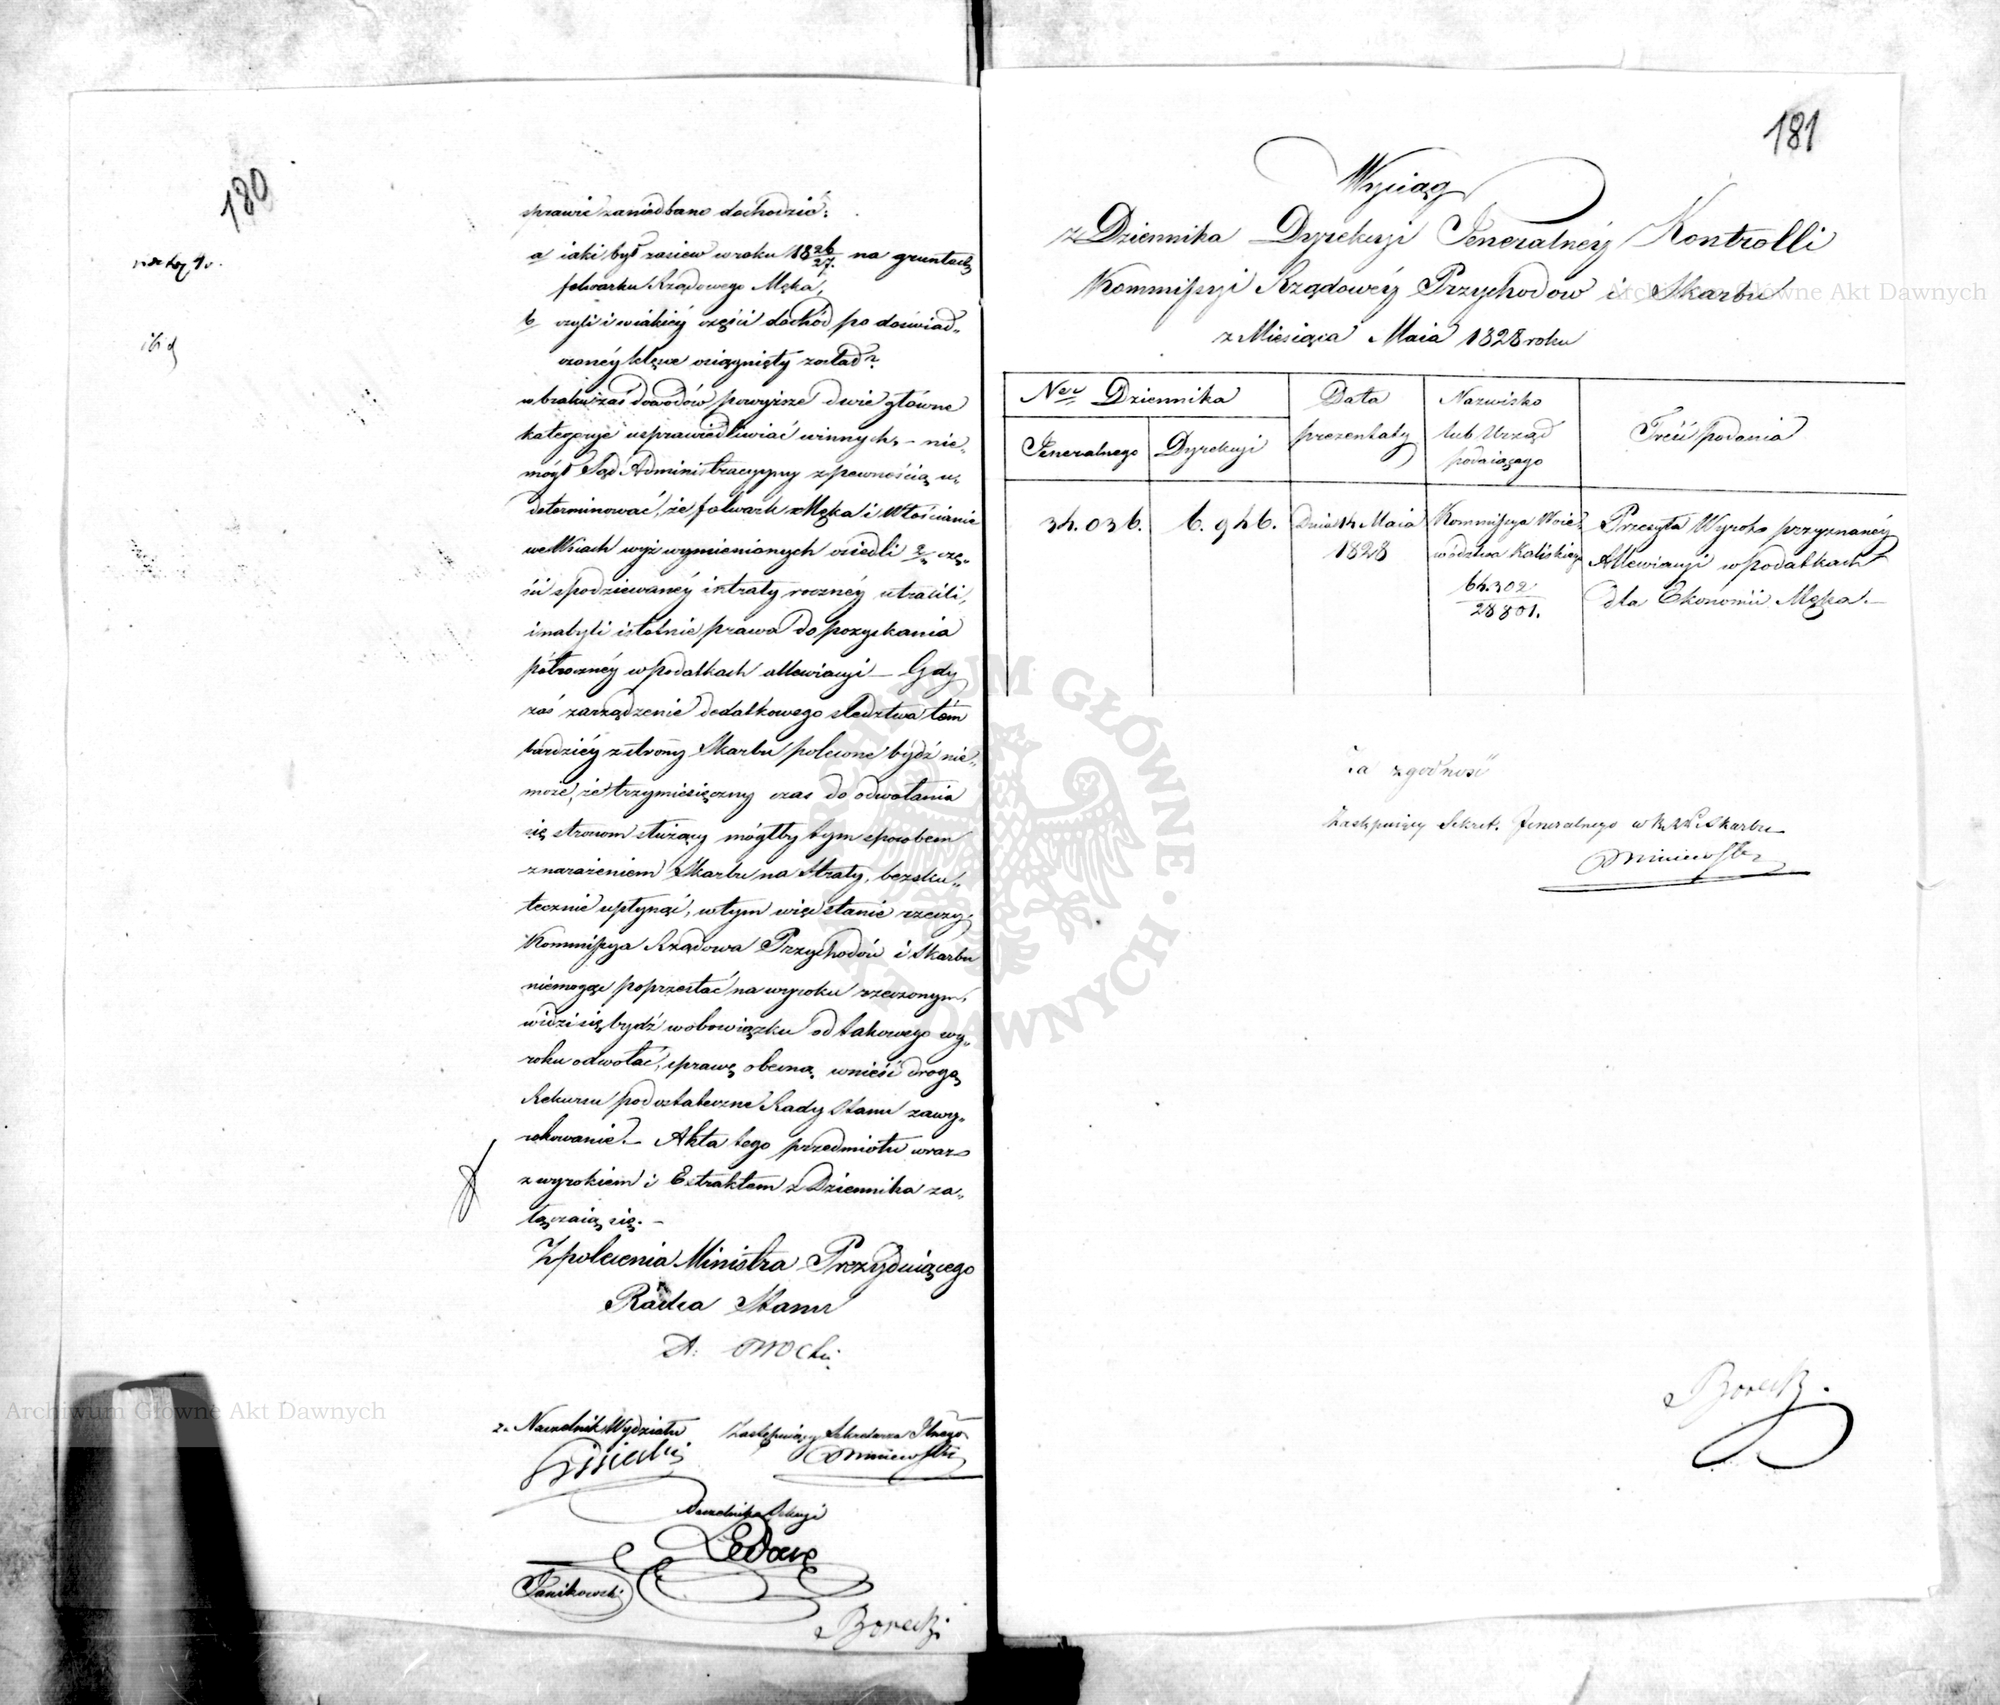 180
sprawie zaniedbano dochodzić:
a/ iaki był zasiew w roku 1826/27. na gruntach
folwarku Rządowego Męka,
b/ czyli i w iakiéy części dochód po doświad„
czonéy klęsce osiągnięty został?
w braku zaś dowodów powyższe dwie główne
kategorye usprawiedliwiać winnych, – nie„
mógł Sąd Administracyjny z pewnością
determinować, że folwark Męka i Włościanie
we Wsiach wyż wymienionych osiedli 2/3 czę„
ści spodziewanéy intraty roczney utracili,
i nabyli istotnie prawa do pozyskania
półroczney w podatkach allewiacyi – Gdy
zaś zarządzenie dodatkowego śledztwa tém
bardziéy z strony Skarbu polecone bydź nie„
może, że trzymiesięczny czas do odwołania
się stronom służący mógłby tym sposobem
z narażeniem Skarbu na Straty, bezsku„
tecznie upłynąć, w tym więc stanie rzeczy
Kommissya Rządowa Przychodów i Skarbu
niemogąc poprzestać na wyroku rzeczonym,
widzi się bydź w obowiązku od takowego wy„
roku odwołać, sprawę obecną wnieść drogą
Rekursu pod ostateczne Rady Stanu zawy„
rokowanie. – Akta tego przedmiotu wraz
z wyrokiem i Extraktem z Dziennika za„
łączaią się. –
Z polecenia Ministra Prezyduiącego
Radca Stanu
z. Naczelnik Wydziału Zastępuiący Sekretarza Jlnego
Naczelnik Sekcyi
Janikowski
Borecki
181
Wyciąg
z Dziennika Dyrekcyi Jeneralnéy Kontrolli
Kommissyi Rządowéy Przychodow i Skarbu
z Miesiąca Maia 1828 roku
Ner Dziennika
Jeneralnego
Dyrekcyi
Data
prezentaty
Nazwisko
lub Urząd
podaiącego
Treść podania
34.036.
6.946.
Dnia 14 Maia
1828
Kommissya Woie„
wództwa Kaliskiego
64.302
28801.
Przesyła Wyrok przyznanéy
Allewiacyi w podatkach
dla Ekonomii Męka. –
Za zgodność
Zastępuiący Sekret. Jeneralnego w K.R.P.i Skarbu
Borecki.
Archiwum Główne Akt Dawnych
Archiwum Główne Akt Dawnych
ARCHIWUM GŁÓWNE AKT DAWNYCH